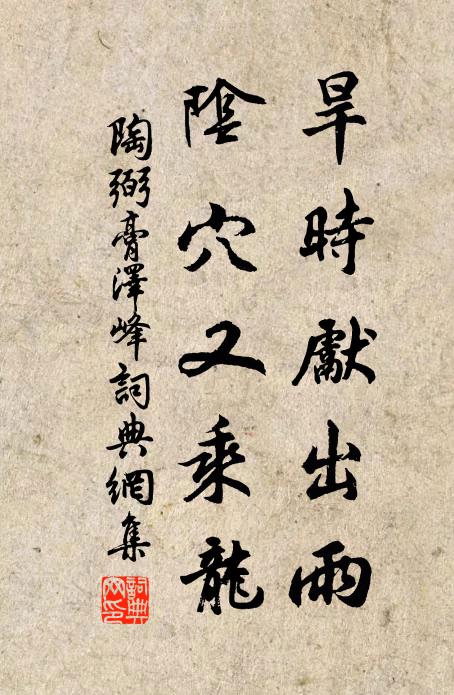 旱時獻出雨
陰穴又乘龍
陶弼膏澤峰詞典網集
詞典網印